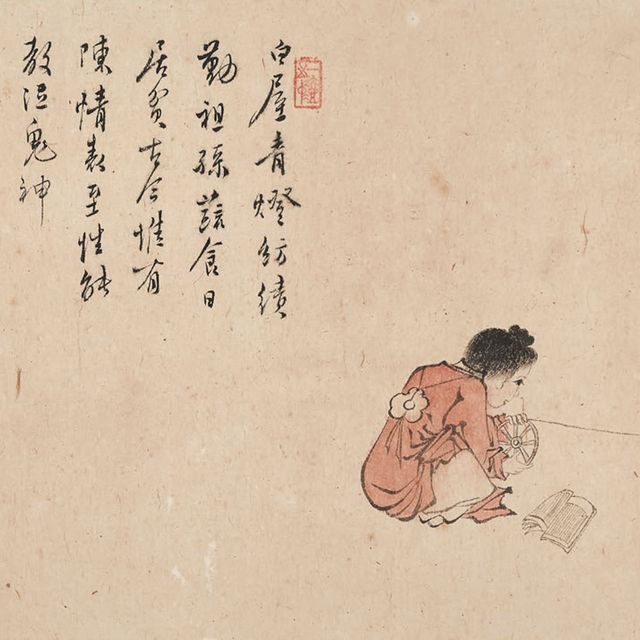 白屋青燈紡績
勤祖孫蔬食日
居貧古今惟有
陳情表至性能
教泣鬼神